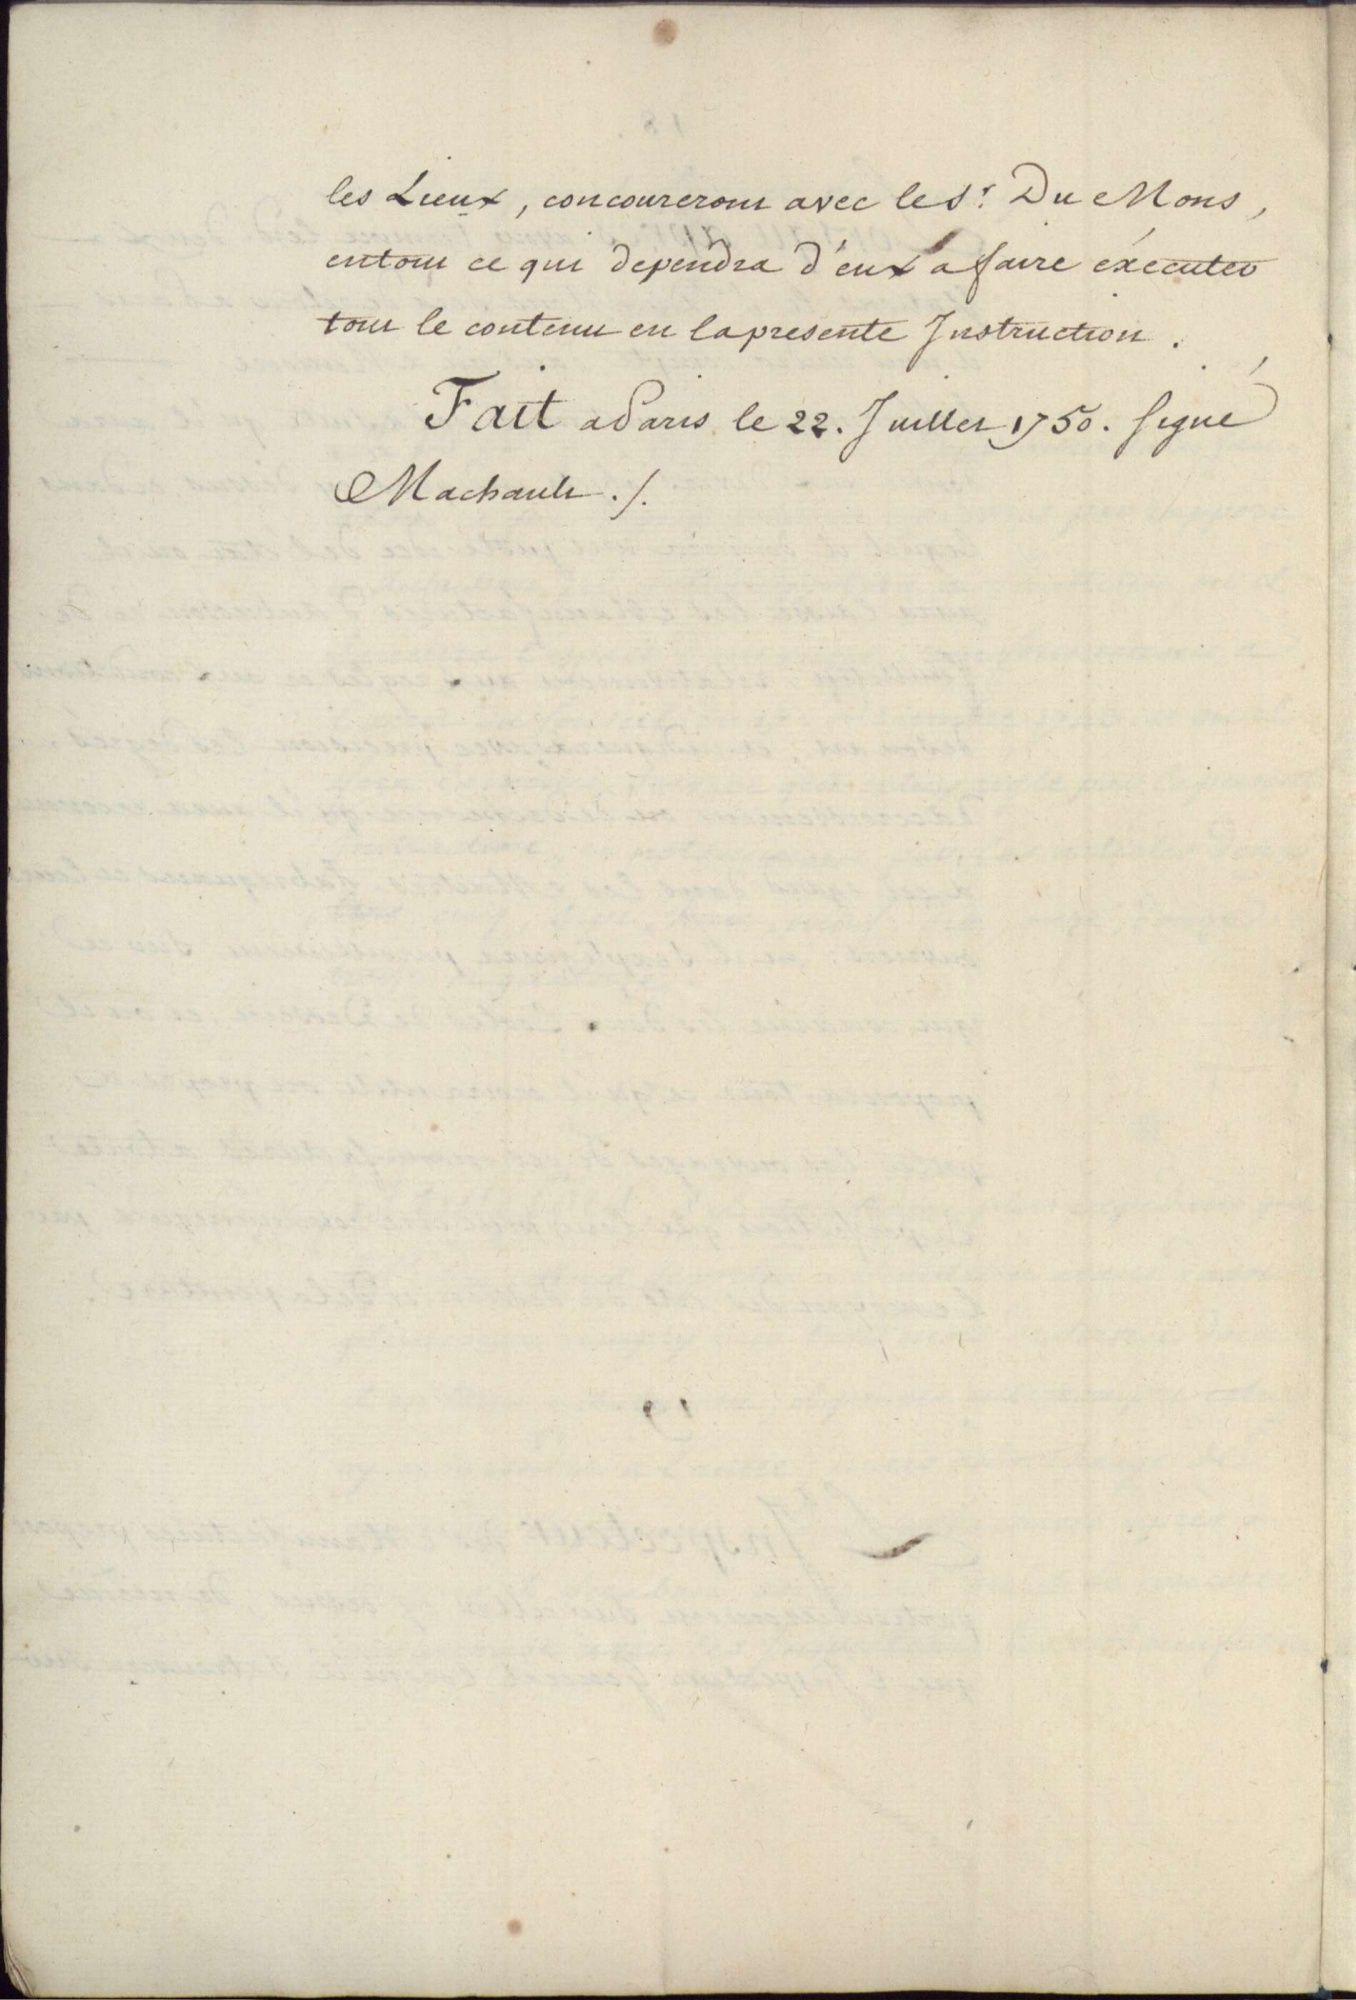 les Lieux, concoureront avec le Sr. Du Mons,
en tout ce qui dependra d'eux a faire éxecuter
tout le contenu en la presente Instruction.
Fait a Paris le 22. Juillet 1750. signé
Machault ./.